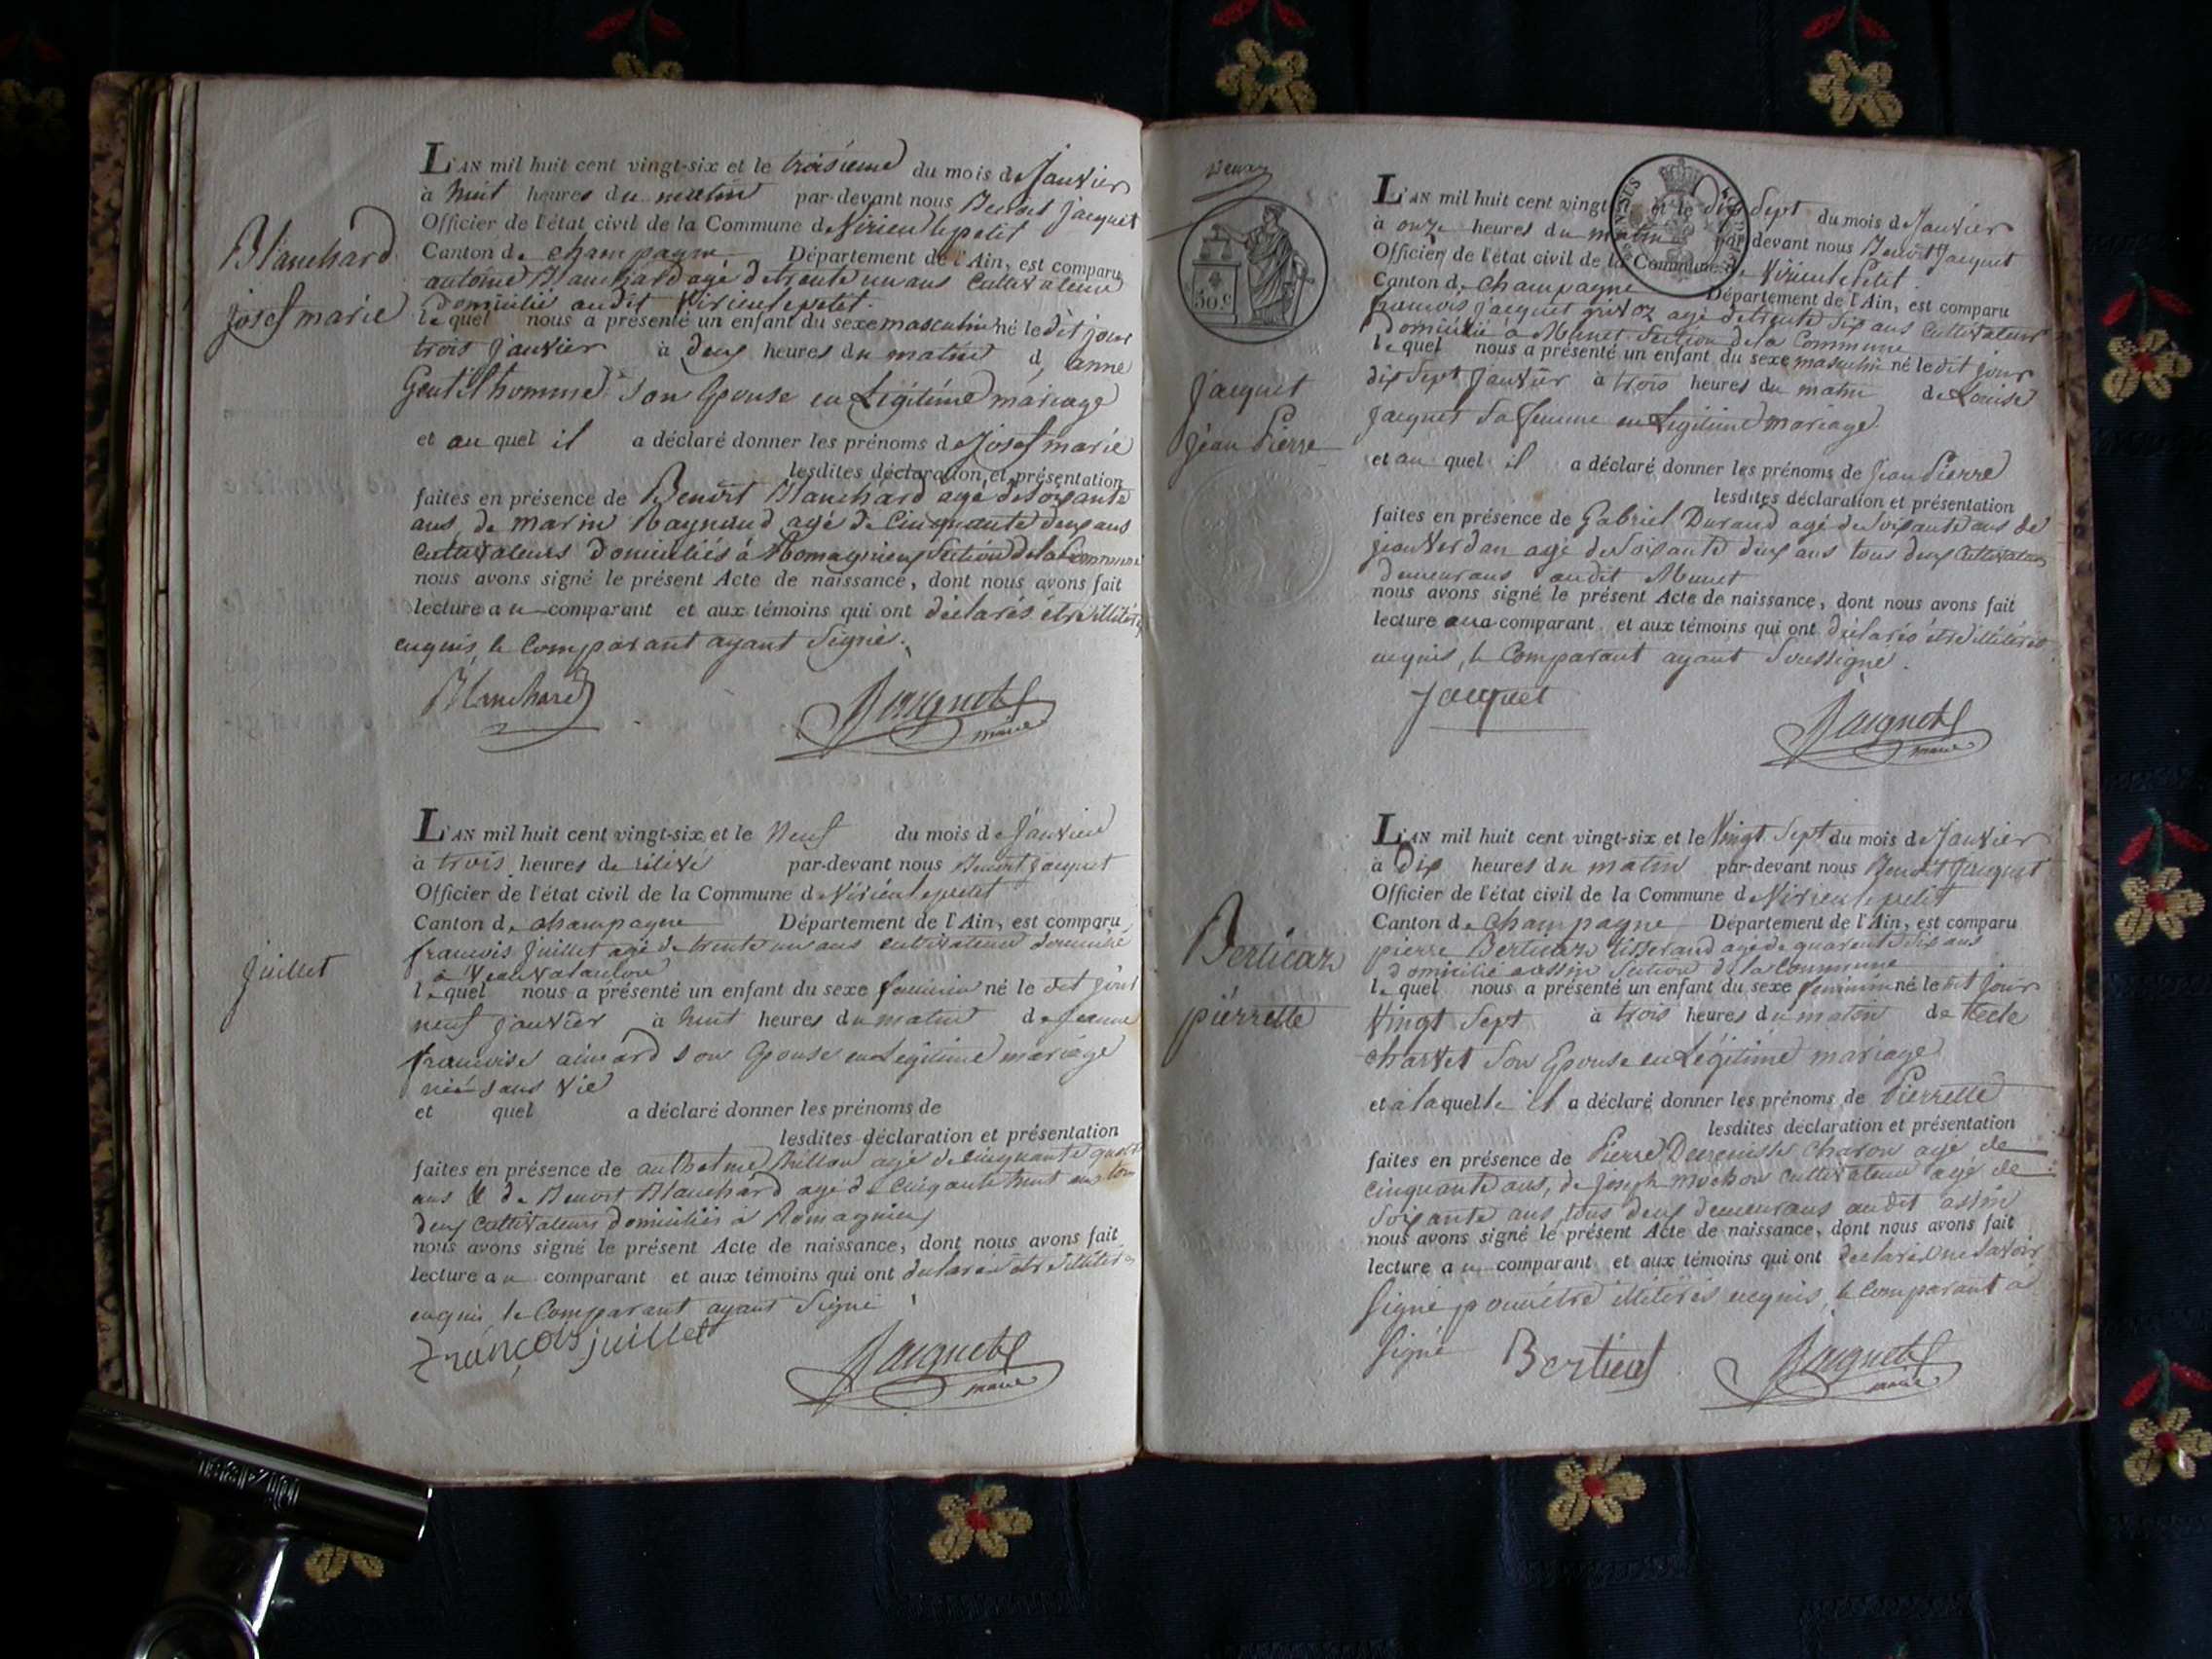 L'AN mil huit cent vingt-six et le troisieme du mois de Janvier
à huit heures du matin par-devant nous Benoit jacquet
Officier de l'état civil de la Commune de Virieu le petit
Canton de champagne Département de l'Ain, est comparu
antoine Blanchard agé de trente un ans Cultivateur
domicilié audit Virieu le petit.
Blanchard
josef marie
le quel nous a présenté un enfant du sexe masculin né le dit jour
trois janvier à deux heures du matin d, anne
Gentilhomme son Epouse en Légitime mariage
et au quel il a déclaré donner les prénoms de Josef marie
lesdites déclaration et présentation
faites en présence de Benoit Blanchard agé de soixante
ans de marin Raynaud agé de Cinquante deux ans
Cultivateurs Domiciliés à Romagnieu Section de la Commune
nous avons signé le présent Acte de naissance, dont nous avons fait
lecture au comparant et aux témoins qui ont déclarés être illitérés
enquis, le Comparant ayant Signé.
Blanchard
Jacquet
maire
L'AN mil huit cent vingt-six et le Neuf du mois de Janvier
à trois heures de relevé par-devant nous Benoit Jacquet
Officier de l'état civil de la Commune de Virieu le petit
Canton de champagne Département de l'Ain, est comparu
francois Juillet agé de trente un ans cultivateur demeure
à
juillet
le quel nous a présenté un enfant du sexe feminin né le dit jour
neuf janvier à huit heures du matin de jeanne
francoise aimard son Epouse en Légitime mariage
née sans vie
et quel a déclaré donner les prénoms de
lesdites déclaration et présentation
faites en présence de anthelme Billon agé de cinquante quatre
ans & de Benoit Blanchard agé de Cinquante huit ans tous
deux Cultivateurs domiciliés à Romagnieu
nous avons signé le présent Acte de naissance, dont nous avons fait
lecture au comparant et aux témoins qui ont déclarés être illitérés
enquis, le Comparant ayant Signé
François juillet
Jacquet
maire
50 c
L'AN mil huit cent vingt et le dix Sept du mois de Janvier
à onze heures du matin par devant nous Benoit Jacquet
Officier de l'état civil de la Commune de Virieu le Petit.
Canton de Champagne Département de l'Ain, est comparu
francois jacquet agé de trente six ans Cultivateur
Domicilié à Munet Section de la Commune
le quel nous a présenté un enfant du sexe masculin né le dit jour
dix Sept Janvier à trois heures du matin de Louise
jacquet Sa femme en Légitime mariage
Jacquet
jean Pierre
et au quel il a déclaré donner les prénoms de Jean Pierre
lesdites déclaration et présentation
faites en présence de Gabriel Durand agé de Soixante ans de
jean Verdan agé de Soixante deux ans tous deux Cultivateurs
demeurans audit Munet
nous avons signé le présent Acte de naissance, dont nous avons fait
lecture au comparant et aux témoins qui ont déclarés être illitérés
enquis, le Comparant ayant Soussigné.
Jacquet
Jacquet
maire
L'AN mil huit cent vingt-six et le Vingt Sept du mois de Janvier
à Dix heures du matin par-devant nous Benoit Jacquet
Officier de l'état civil de la Commune de Virieu le petit
Canton de Champagne Département de l'Ain, est comparu
pierre Bertucaz tisserand agé de quarante Six ans
domicilié assin Section de la Commune
Bertucaz
pierrette
le quel nous a présenté un enfant du sexe feminin né le dit jour
Vingt Sept à trois heures du matin de tecle
Charvet Son Epouse en Légitime mariage
et à laquelle il a déclaré donner les prénoms de Pierrette
lesdites déclaration et présentation
faites en présence de Pierre charon agé de
cinquante ans, de joseph mochon Cultivateur agé de
Soixante ans, tous deux demeurans audit assin
nous avons signé le présent Acte de naissance, dont nous avons fait
lecture au comparant et aux témoins qui ont déclaré ne savoir
Signé pour être illitérés enquis, le Comparant a
Signé
Jacquet
maire